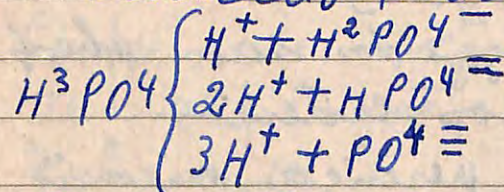 H⁺ + H²PO4⁻
H³PO4 { 2H⁺ + HPO4⁼
3H⁺ + PO4≡